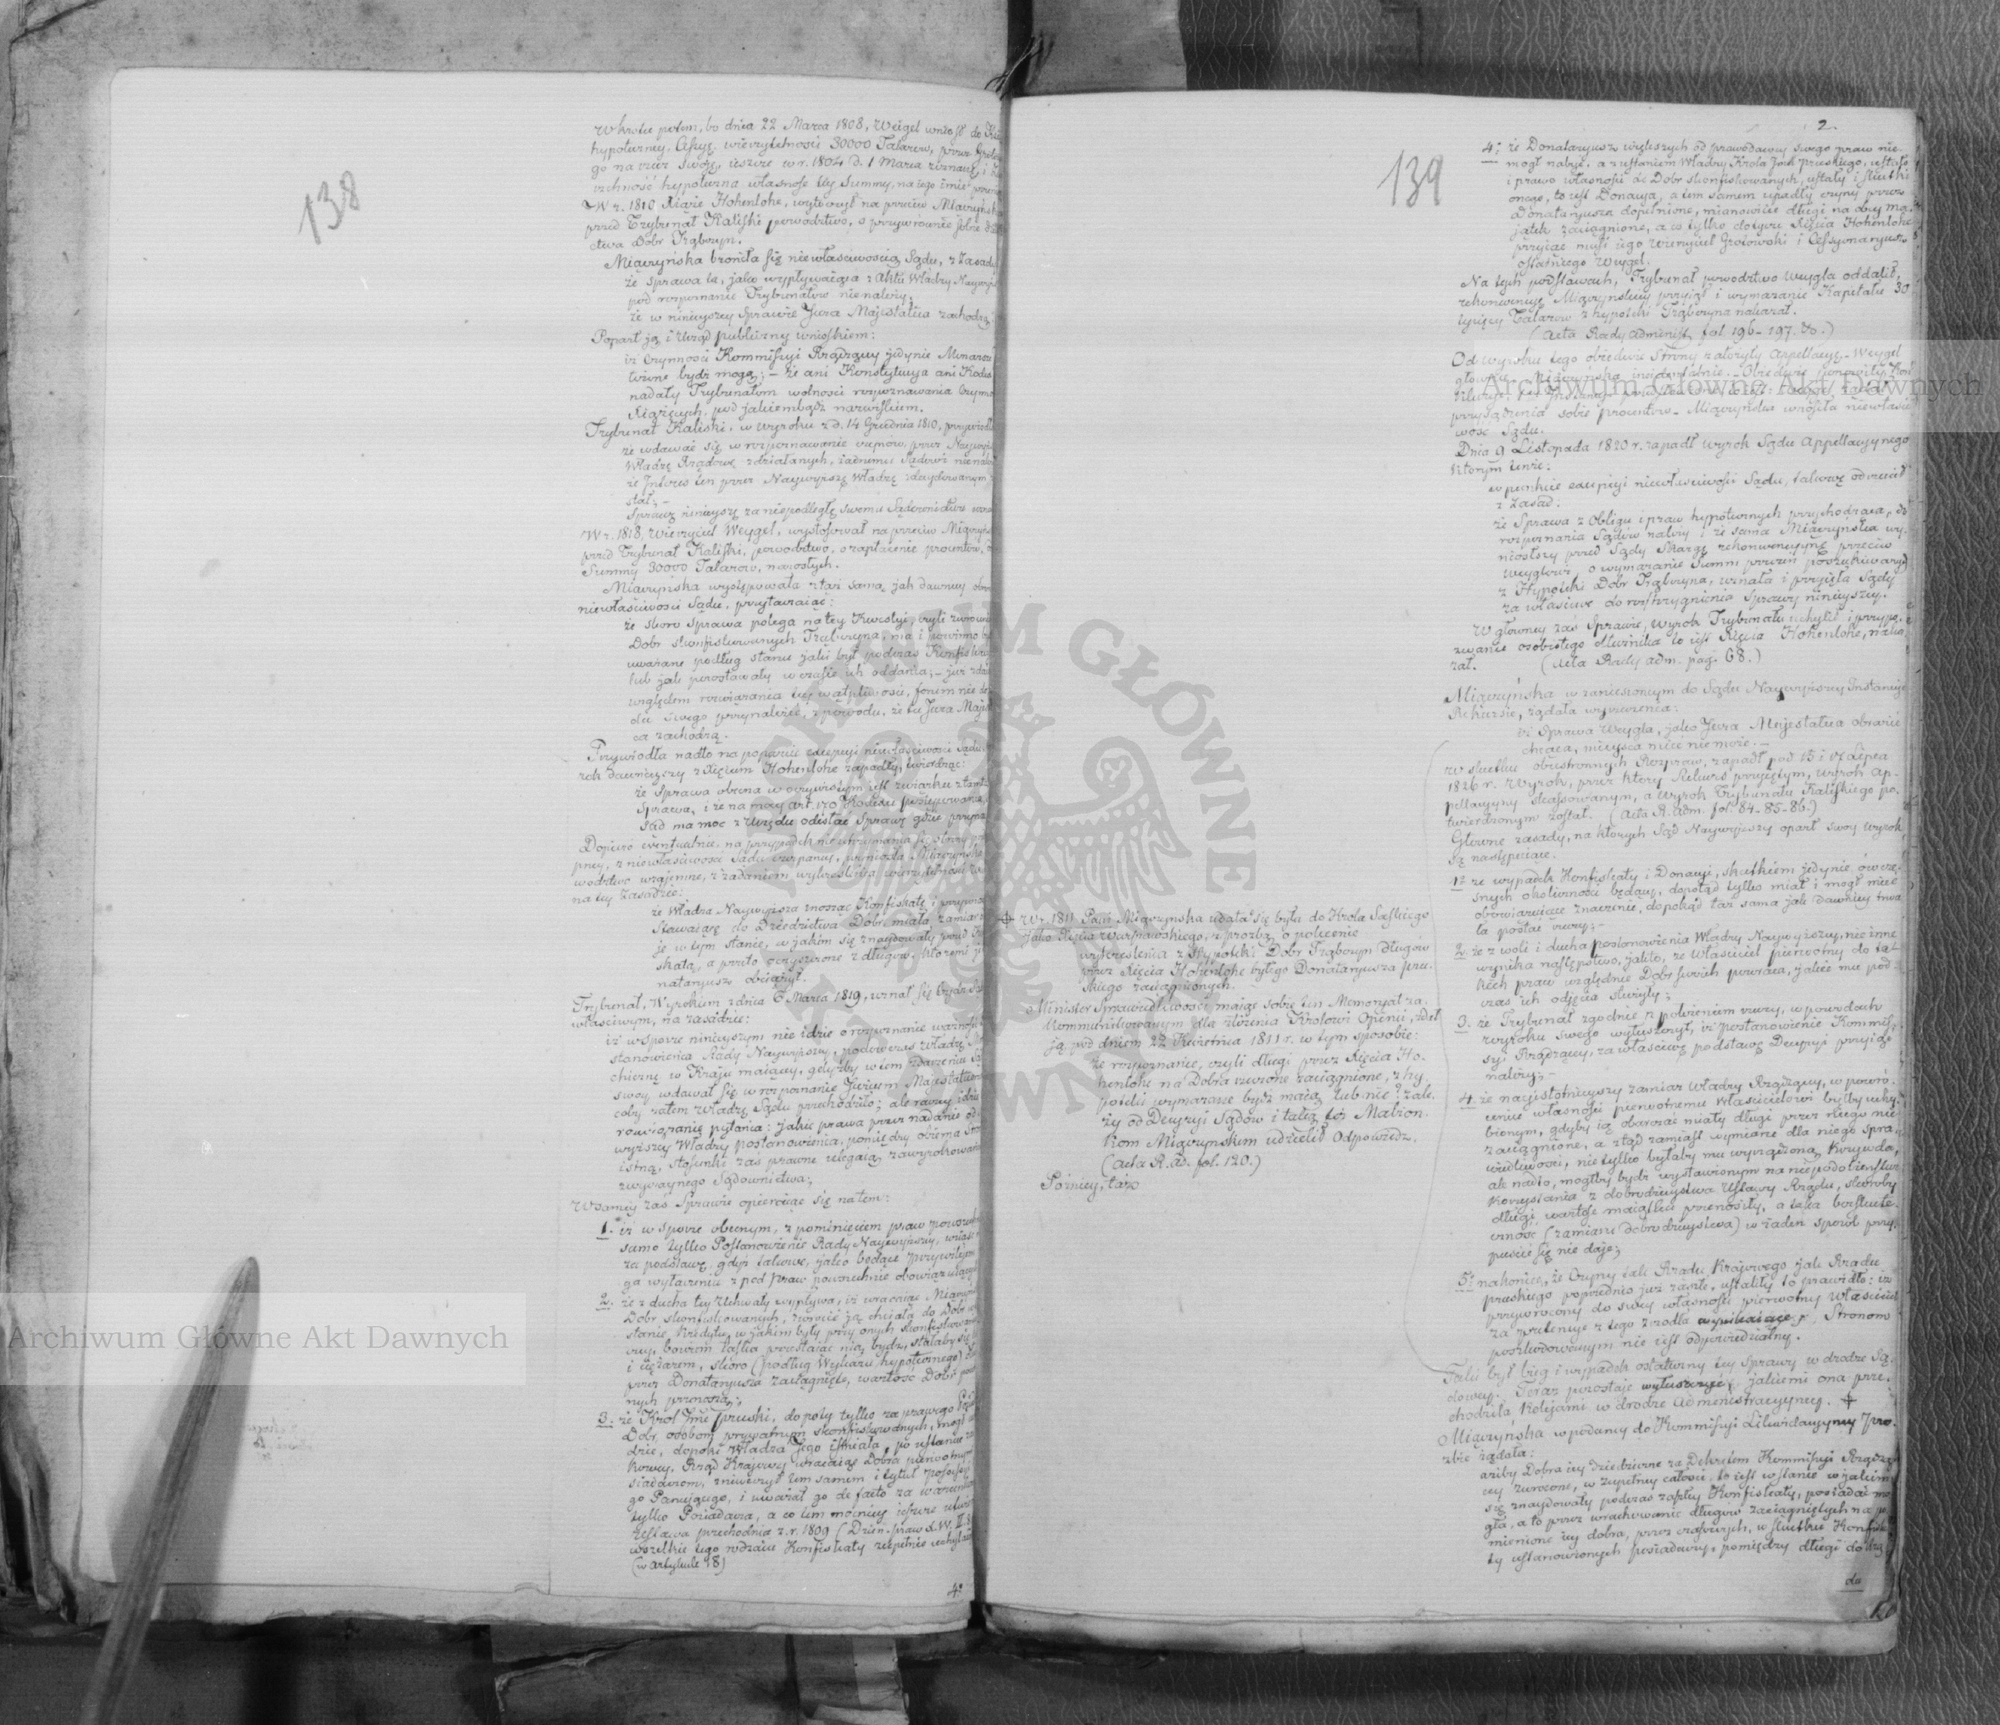 138
W krotce potem, bo dnia 22 Marca 1808, Weigel wniosł do
hypoteczney, Cessyę wierzytelności 30000 Talarow, przez
go na rzecz swoję, jeszcze w r. 1804 d. 1 Marca zeznaną, i
własność tey Summy, na iego imie
W r. 1810 Xiąże Hohenlohe, wytoczył na przeciw Miączyńsk
przed Trybunał Kaliski powodztwo, o przywrócenie sobie
ctwa Dobr Trąbczyn.
Miączyńska broniła się niewłaściwością Sądu, z zasady
że sprawa ta, jako wypływaiąca z Aktu Władzy Naywyż
pod rozpoznanie Trybunałow nie należy;
że w ninieyszey Sprawie Jura Majestatica zachodzą;
Poparł ją i Urząd publiczny wnioskiem:
iż czynności Kommissyi Rządzącey jedynie Monarsze
bydź mogą; – że ani Konstytucya ani Kodex
nadały Trybunałom wolności rozpoznawania Czynn
Xiążęcych, pod jakiembądź nazwiskiem.
Trybunał Kaliski, w wyroku z d. 14 Grudnia 1810, przywiodł
że wdawać się w rozpoznawanie czynów, przez Naywyż
Władzę Rządową zdziałanych, żadnemu Sądowi nie należ
że Interes ten przez Naywyższą Władzę zdecydowanym
stał; –
Sprawę ninieyszą za niepodległą swemu Sądownictwu
W r. 1818, Wierzyciel Weygel, wystosował na przeciw Miączyńs
przed Trybunał Kaliski, powodztwo, o zapłacenie procentów,
Summy 30000 Talarow, narosłych.
Miączyńska występowała z tąż samą jak dawniey
niewłaściwości Sądu, przytaczaiąc:
że skoro Sprawa polega na tey Kwestyi, czyli
Dobr skonfiskowanych Trąbczyna, ma i powinno
uważane podług stanu jaki był podczas Konfisk
lub jak pozostawały w czasie ich oddania; – już
względem rozwiązania tey wątpliwości, forum nie
du swego przynależeć, z powodu, że tu Jura Majest
ca zachodzą.
Przywiodła nadto na poparcie excepcyi niewłaściwości Sądu
rok dawnieyszy z Xięciem Hohenlohe zapadły, twierdząc:
że Sprawa obecna w oczywistym jest związku z tamtą
Sprawą, i że na mocy art. 170 Kodexu postępowania
Sąd ma moc z Urzędu odesłać Sprawę gdzie przyna
Dopiero eventualnie, na przypadek nie utrzymania się obrony
, z niewłaściwości Sądu czerpaney, wytoczyła Miączyńska
wodztwo wzajemne, z żądaniem wykreślenia wierzytelności
na tey zasadzie:
że Władza Naywyższa znosząc Konfiskatę i przywra
ją do Dziedzictwa Dobr, miała zamiar
je w tym stanie, w jakim się znaydowały przed
skatą, a przeto oczyszczone z długow, któremi je
natariusz obciążył.
Trybunał, Wyrokiem z dnia 6 Marca 1819, uznał się bydź
właściwym, na zasadzie:
iż w sporze ninieyszym nie idzie o rozpoznanie ważności
stanowienia Rady Naywyższey, podówczas Władzę
w Kraju maiącey, gdyżby w tem zdarzeniu Sąd
swoy wdawał się w rozpoznanie Jurium Majestaticorum
coby zatem Władzę Sądu przechodziło; ale raczey idzie
rozwiązanie pytania: jakie prawa przez nadanie
wyższey Władzy postanowienia, pomiędzy obiema Stron
istną, stosunki zaś prawne ulegaią zawyrokowaniu
zwyczaynego Sądownictwa;
W samey zaś Sprawie opieraiąc się na tem:
1. iż w sporze obecnym, z pominięciem praw powszechn
samo tylko Postanowienie Rady Naywyższey,
za podstawę, gdyż takowe, jako będące przywilejem
ga wyłączeniu z pod praw powszechnie obowiązuiących
2. że z ducha tey Uchwały wypływa, iż wracaiąc Miączyńsk
Dobr skonfiskowanych, zwrócić ją chciała do Dobr w
stanie Kredytu, w jakim były przy onych skonfiskowan
czey bowiem łaska przestaiąc nią bydź, stałaby się
i ciężarem, skoro (podług Wykazu hypotecznego)
przez Donataryusza zaciągnięte, wartość Dobr
nych przenoszą;
3. że Król Jmć Pruski, do poty tylko za prawego
Dobr, osobom prywatnym skonfiskowanych, mógł
dzie, dopoki Władza Jego istniała, po ustaniu
kowey, Rząd Kraiowy wracaiąc Dobra pierwotnym
siadaczom, zniweczył tem samem i tytuł
go Panuiącego, i uważał go de facto za
tylko Posiadacza, a co tem mocniey jeszcze utwierdz
Ustawa przechodnia z r. 1809 (Dzien. praw X.W. T.
wszelkie tego rodzaiu Konfiskaty zupełnie uchylaiąca
(w artykule 18)
4º
139
2.
4: że Donataryusz większych od prawodawcy swego praw nie
mogł nabyć, a z ustaniem Władzy Króla Jmci pruskiego, ustało
i prawo własności do Dobr skonfiskowanych, ustały i skutki
onego, to jest Donacya, a tem samem upadły czyny przez
Donataryusza dopełnione, mianowicie długi na obcy ma-
jątek zaciągnione, a co tylko do tyczy Xięcia Hohenlohe
przyiąć musi iego Wierzyciel Grotowski i Cessyonaryusz
ostatniego Weygel.
Na tych podstawach, Trybunał powodztwo Weygla oddalił,
rekonwencyę Miączyńskiey przyiął i wymazanie Kapitału 30
tysięcy Talarow z hypoteki Trąbczyna nakazał.
(Acta Rady Administ. fol 196–197. Vo.)
Od wyroku tego obiedwie Strony założyły Appellacyę – Weygel
głowną, Miączyńska incydentalnie. – Obiedwie ponowiły Kon
przysądzenia sobie procentów – Miączyńska wniosła niewłaści
wość Sądu.
Dnia 9 Listopada 1820 r. zapadł wyrok Sądu Appellacyjnego
którym tenże:
w punkcie excepcyi niewłaściwości Sądu, takową odrzucił
z zasad:
że Sprawa z Obligu i praw hypotecznych przychodząca, do
rozpoznania Sądów należy i że sama Miączyńska wy-
niosłszy przed Sądy Skargę rekonwencyjną przeciw
Weyglowi, o wymazanie Summ przezeń poszukiwanych
z Hypoteki Dobr Trąbczyna, uznała i przyięła Sądy
za właściwe do rozstrzygnienia Sprawy ninieyszey.
W głowney zaś Sprawie, wyrok Trybunału uchylił i przypo-
zwanie osobistego dłużnika to iest Xięcia Hohenlohe, naka-
zał. (Acta Rady adm. pag. 68.)
Miączyńska w zaniesionym do Sądu Naywyższey Instancyi
Rekursie, żądała wyrzeczenia:
iż Sprawa Weygla, jako Jura Majestatica obrazić
chcąca, mieysca mieć nie może. –
w skutku obustronnych Rozpraw, zapadł pod 15 i 17 Lipca
1826 r. Wyrok, przez który Rekurs przyiętym, wyrok Ap-
pellacyjny skassowanym, a wyrok Trybunału Kaliskiego po-
twierdzonym został. (Acta R. Adm. fol. 84–85–86.)
Głowne zasady, na których Sąd Naywyższy oparł swoy wyrok,
są następuiące.
1º że wypadek Konfiskaty i Donacyi, skutkiem jedynie ówcze-
snych okoliczności będący, dopotąd tylko miał i mógł mieć
obowiązuiące znaczenie, dopokąd taż sama jak dawniey trwa-
ła postać rzeczy; –
2. że z woli i ducha postanowienia Władzy Naywyższey, nie inne
wynika następstwo, jak to, że Właściciel pierwotny do ta-
kich praw względnie Dobr swoich powraca, jakie mu pod
czas ich odjęcia służyły;
3. że Trybunał zgodnie z położeniem rzeczy, w powodach
wyroku swego wytłuszczył, iż postanowienie Kommis-
syi Rządzącey, za właściwą podstawę Decyzyi przyiąć
należy; –
4. że nayistotnieyszy zamiar Władzy Rządzącey, w powró-
ceniu własności pierwotnemu Właścicielowi byłby uchy-
bionym, gdyby ią obarczać miały długi przez niego nie
zaciągnione, a ztąd zamiast wymiaru dla niego spra-
wiedliwości, nie tylko byłaby mu wyrządzoną krzywda,
ale nadto, mogłby bydź wystawionym na niepodobieństwo
Korzystania z dobrodzieystwa Ustawy Rządu, skoroby
długi wartość maiątku przenosiły, a taka bezskute-
czność (zamiaru dobrodzieystwa) w żaden sposób przy-
puścić się nie daje;
5º nakoniec, że Czyny tak Rządu Kraiowego jak Rządu
pruskiego poprzednio już zaszłe, ustaliły to prawidło: iż
przywrócony do swey własności pierwotny Właściciel
za pretensye z tego zrodła wynikaiące, Stronom
poszkodowanym nie jest odpowiedzialny.
Taki był bieg i wypadek ostateczny tey sprawy w drodze Są-
dowey. Teraz pozostaje wytłuszczyć, jakiemi ona prze-
chodziła Kolejami w drodze administracyyney. ⌖
Miączyńska w podaney do Kommissyi Likwidacyyney Pro-
zbie żądała:
ażeby Dobra iey dziedziczne za Dekretem Kommissyi Rządzą-
cey zwrócone, w zupełney całości, to jest w stanie w jakim
się znaydowały podczas zaszłey Konfiskaty, posiadać mo-
gła, a to przez wrachowanie długów zaciągniętych na po-
mienione iey dobra, przez czasowych, w skutku Konfiska-
ty ustanowionych posiadaczy, pomiędzy długi do
⌖ W r. 1811 Pani Miączyńska udała się była do Króla Saskiego
jako Xięcia Warszawskiego, z prozbą o polecenie
wykreślenia z Hypoteki Dobr Trąbczyn długów
przez Xięcia Hohenlohe byłego Donataryusza pru-
skiego zaciągnionych.
Minister Sprawiedliwości maiąc sobie ten Memoryał za-
kommunikowanym dla złożenia Królowi Opinii, zdał
ją pod dniem 22 Kwietnia 1811 r. w tym sposobie:
że rozpoznanie, czyli długi przez Xięcia Ho-
henlohe na Dobra rzeczone zaciągnione, z hy-
poteki wymazane bydź maią lub nie? zale-
ży od Decyzyi Sądów i taką też Małżon-
kom Miączyńskim udzielił Odpowiedz.
(Acta R. Ad. fol. 120.)
Pozniey, taż
Archiwum Główne Akt Dawnych
Archiwum Główne Akt Dawnych
ARCHIWUM GŁÓWNE AKT DAWNYCH W WARSZAWIE